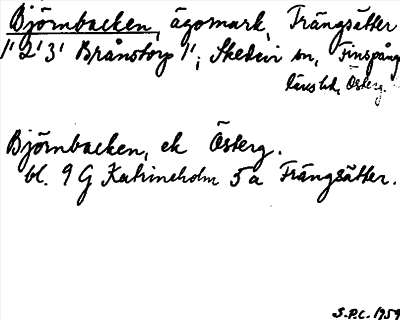 Björnbacken, ägomark, Trängsätter
1¹ 2¹ 3¹ Brånstorp 1¹, Skedevi sn, Finspång
läns hd, Österg.
Björnbacken, ek Österg.
bl. 9 G Katrineholm 5a Trängsätter.
S.P.C. 1959